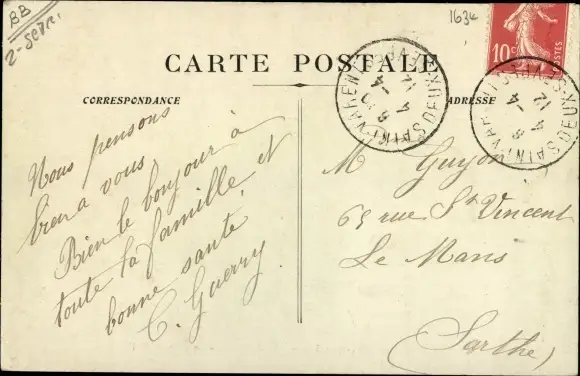 BB
2-Sevr.
1634
10c POSTES
CARTE POSTALE
CORRESPONDANCE
ADRESSE
SAINT-VARENT DEUX-SEVRES
SAINT-VARENT DEUX-SEVRES
Nous pensons
bien a vous
Bien le bonjour à
toute la famille, et
bonne sante
C. Guerry
M Guyon
65 rue St Vincent
Le Mans
(Sarthe)